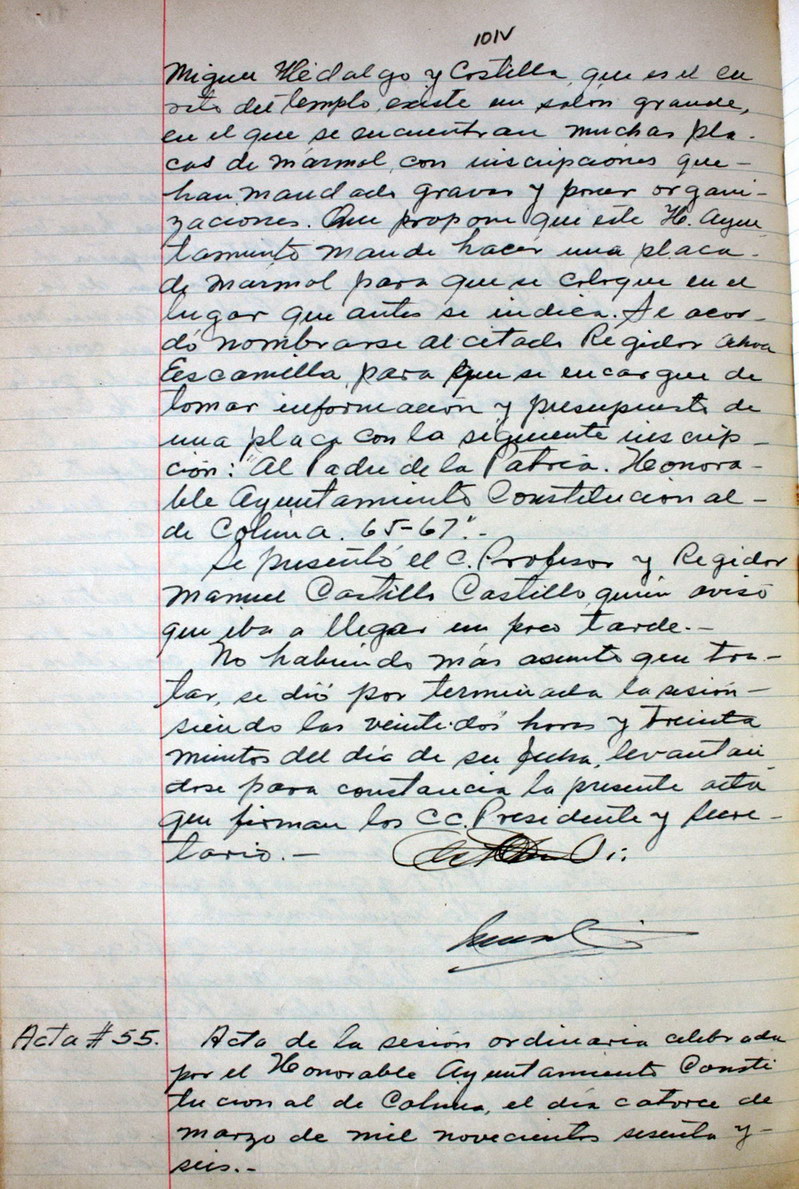 101V
Miguel Hidalgo y Costilla, que es el cu
rato del templo, existe un salón grande,
en el que se encuentran muchas pla-
cas de mármol, con inscripciones que-
han mandado gravar y poner organi-
zaciones. Que propone que este H. Ayun
tamiento mande hacer una placa-
de mármol para que se coloque en el
lugar que antes se indica. Se acor-
dó nombrarse al citado Regidor
Escamilla, para que se encargue de
tomar información y presupuesto de
una placa con la siguiente inscrip-
ción: "Al Padre de la Patria. Honora-
ble Ayuntamiento Constitucional-
de Colima. 65-67".-
Se presentó el C. Profesor y Regidor
Manuel Castillo Castillo, quien avisó
que iba a llegar un poco tarde.-
No habiendo más asunto que tra-
tar, se dió por terminada la sesión-
siendo las veintidos horas y treinta
minutos del día de su fecha, levantan-
dose para constancia la presente acta
que firman los CC. Presidente y Secre-
tario.-
Acta # 55. Acta de la sesión ordinaria celebrada
por el Honorable Ayuntamiento Consti
tucional de Colima, el día catorce de
marzo de mil novecientos sesenta y-
seis.-